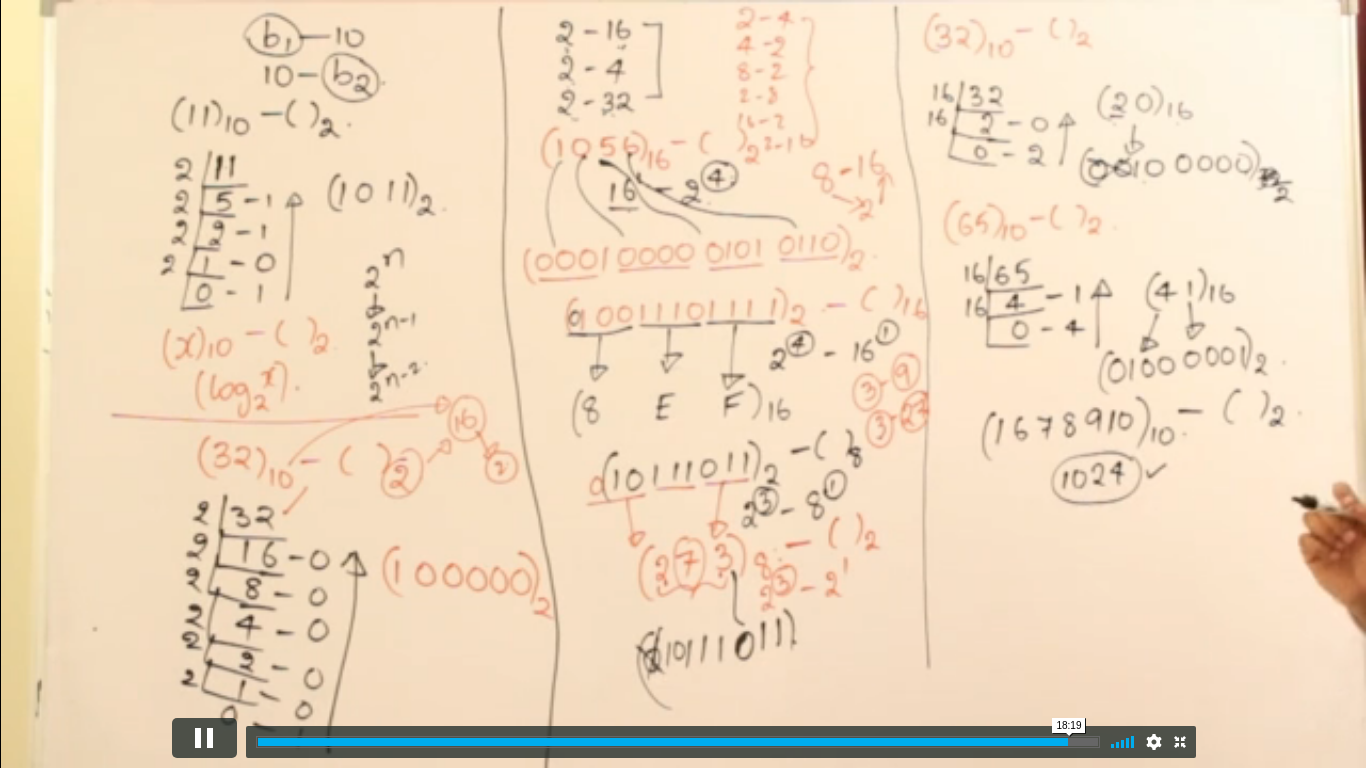 b₁ — 10
10 — b₂
(11)₁₀ – ( )₂.
2 | 11
2 | 5 – 1
2 | 2 – 1
2 | 1 – 0
0 – 1
(1011)₂
2ⁿ
2ⁿ⁻¹
2ⁿ⁻²
(x)₁₀ – ( )₂.
(log₂x).
(32)₁₀ – ( )₂
16
2
2 | 32
2 | 16 – 0
2 | 8 – 0
2 | 4 – 0
2 | 2 – 0
2 | 1 – 0
0 –
(100000)₂
2 – 16
2 – 4
2 – 32
2 – 4
4 – 2
8 – 2
2 – 8
16 – 2
2 – 16
(1056)₁₆ – ( )₂
16¹ – 2⁴
8 – 16
→ 2
(0001 0000 0101 0110)₂.
(100011101111)₂ – ( )₁₆
2⁴ – 16¹
(8 E F)₁₆
3 – 9
3 – 27
0(10111011)₂ – ( )₈
2³ – 8¹
(273)₈ – ( )₂
2³ – 2¹
10111011)
(32)₁₀ – ( )₂
16 | 32
16 | 2 – 0
0 – 2
(20)₁₆
(0010 0000)₂
(65)₁₀ – ( )₂.
16 | 65
16 | 4 – 1
0 – 4
(41)₁₆
(0100 0001)₂.
(1678910)₁₀ – ( )₂.
1024 ✓
18:19